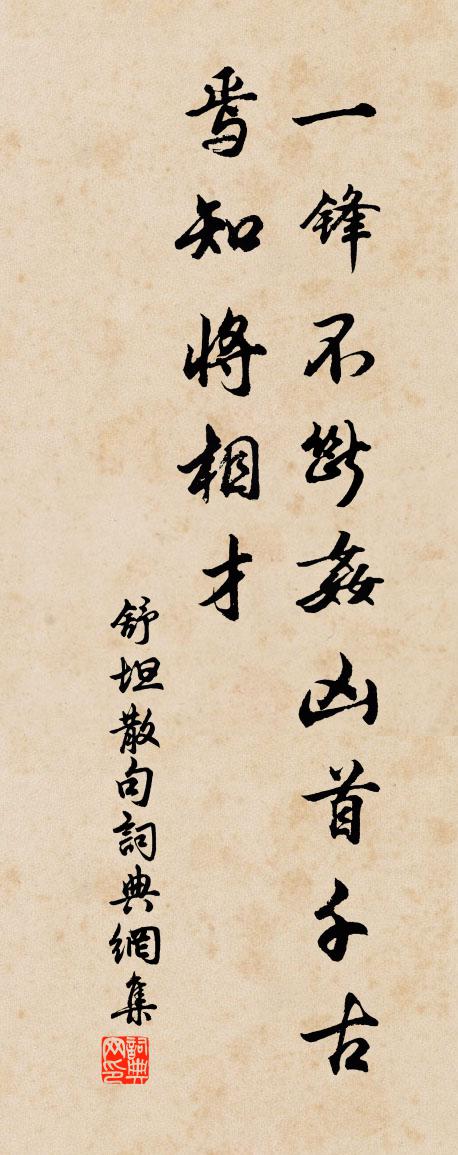 一鋒不斷姦凶首千古
焉知將相才
舒坦散句詞典網集
詞典网印